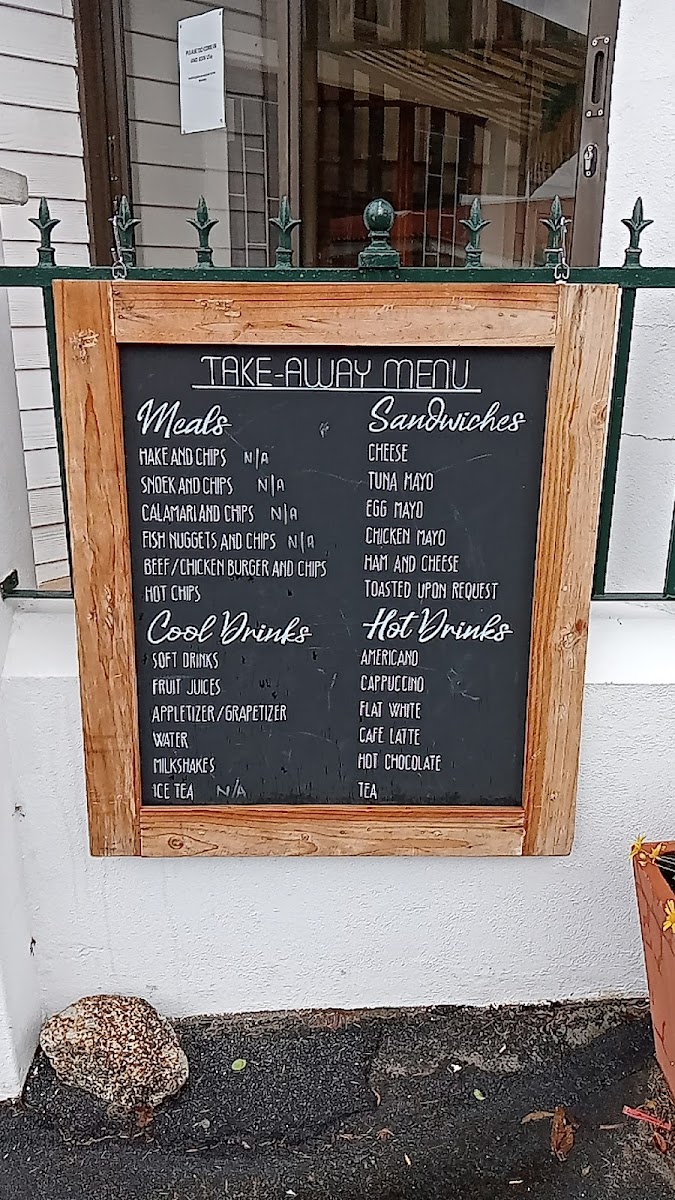 PLEASE DO COME IN
AND JOIN US!
TAKE-AWAY MENU
Meals
HAKE AND CHIPS N/A
SNOEK AND CHIPS N/A
CALAMARI AND CHIPS N/A
FISH NUGGETS AND CHIPS N/A
BEEF/CHICKEN BURGER AND CHIPS
HOT CHIPS
Sandwiches
CHEESE
TUNA MAYO
EGG MAYO
CHICKEN MAYO
HAM AND CHEESE
TOASTED UPON REQUEST
Cool Drinks
SOFT DRINKS
FRUIT JUICES
APPLETIZER/GRAPETIZER
WATER
MILKSHAKES
ICE TEA N/A
Hot Drinks
AMERICANO
CAPPUCCINO
FLAT WHITE
CAFE LATTE
HOT CHOCOLATE
TEA